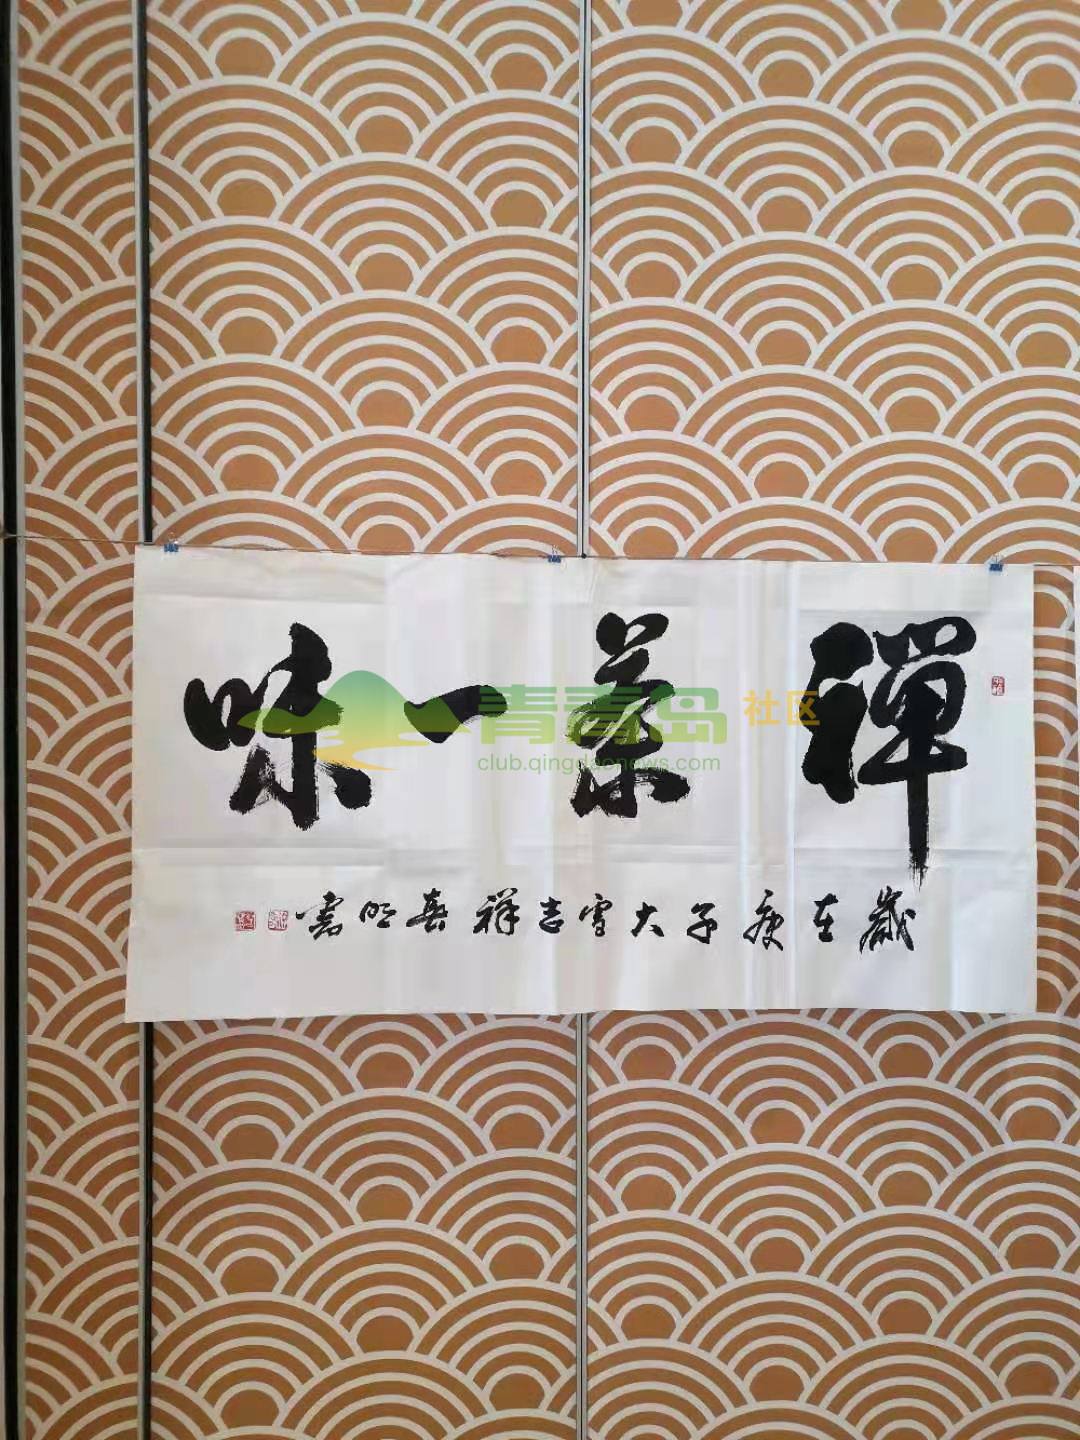 禪茶一味
歲在庚子大雪吉祥春明書
青青岛社区
club.qingdaonews.com